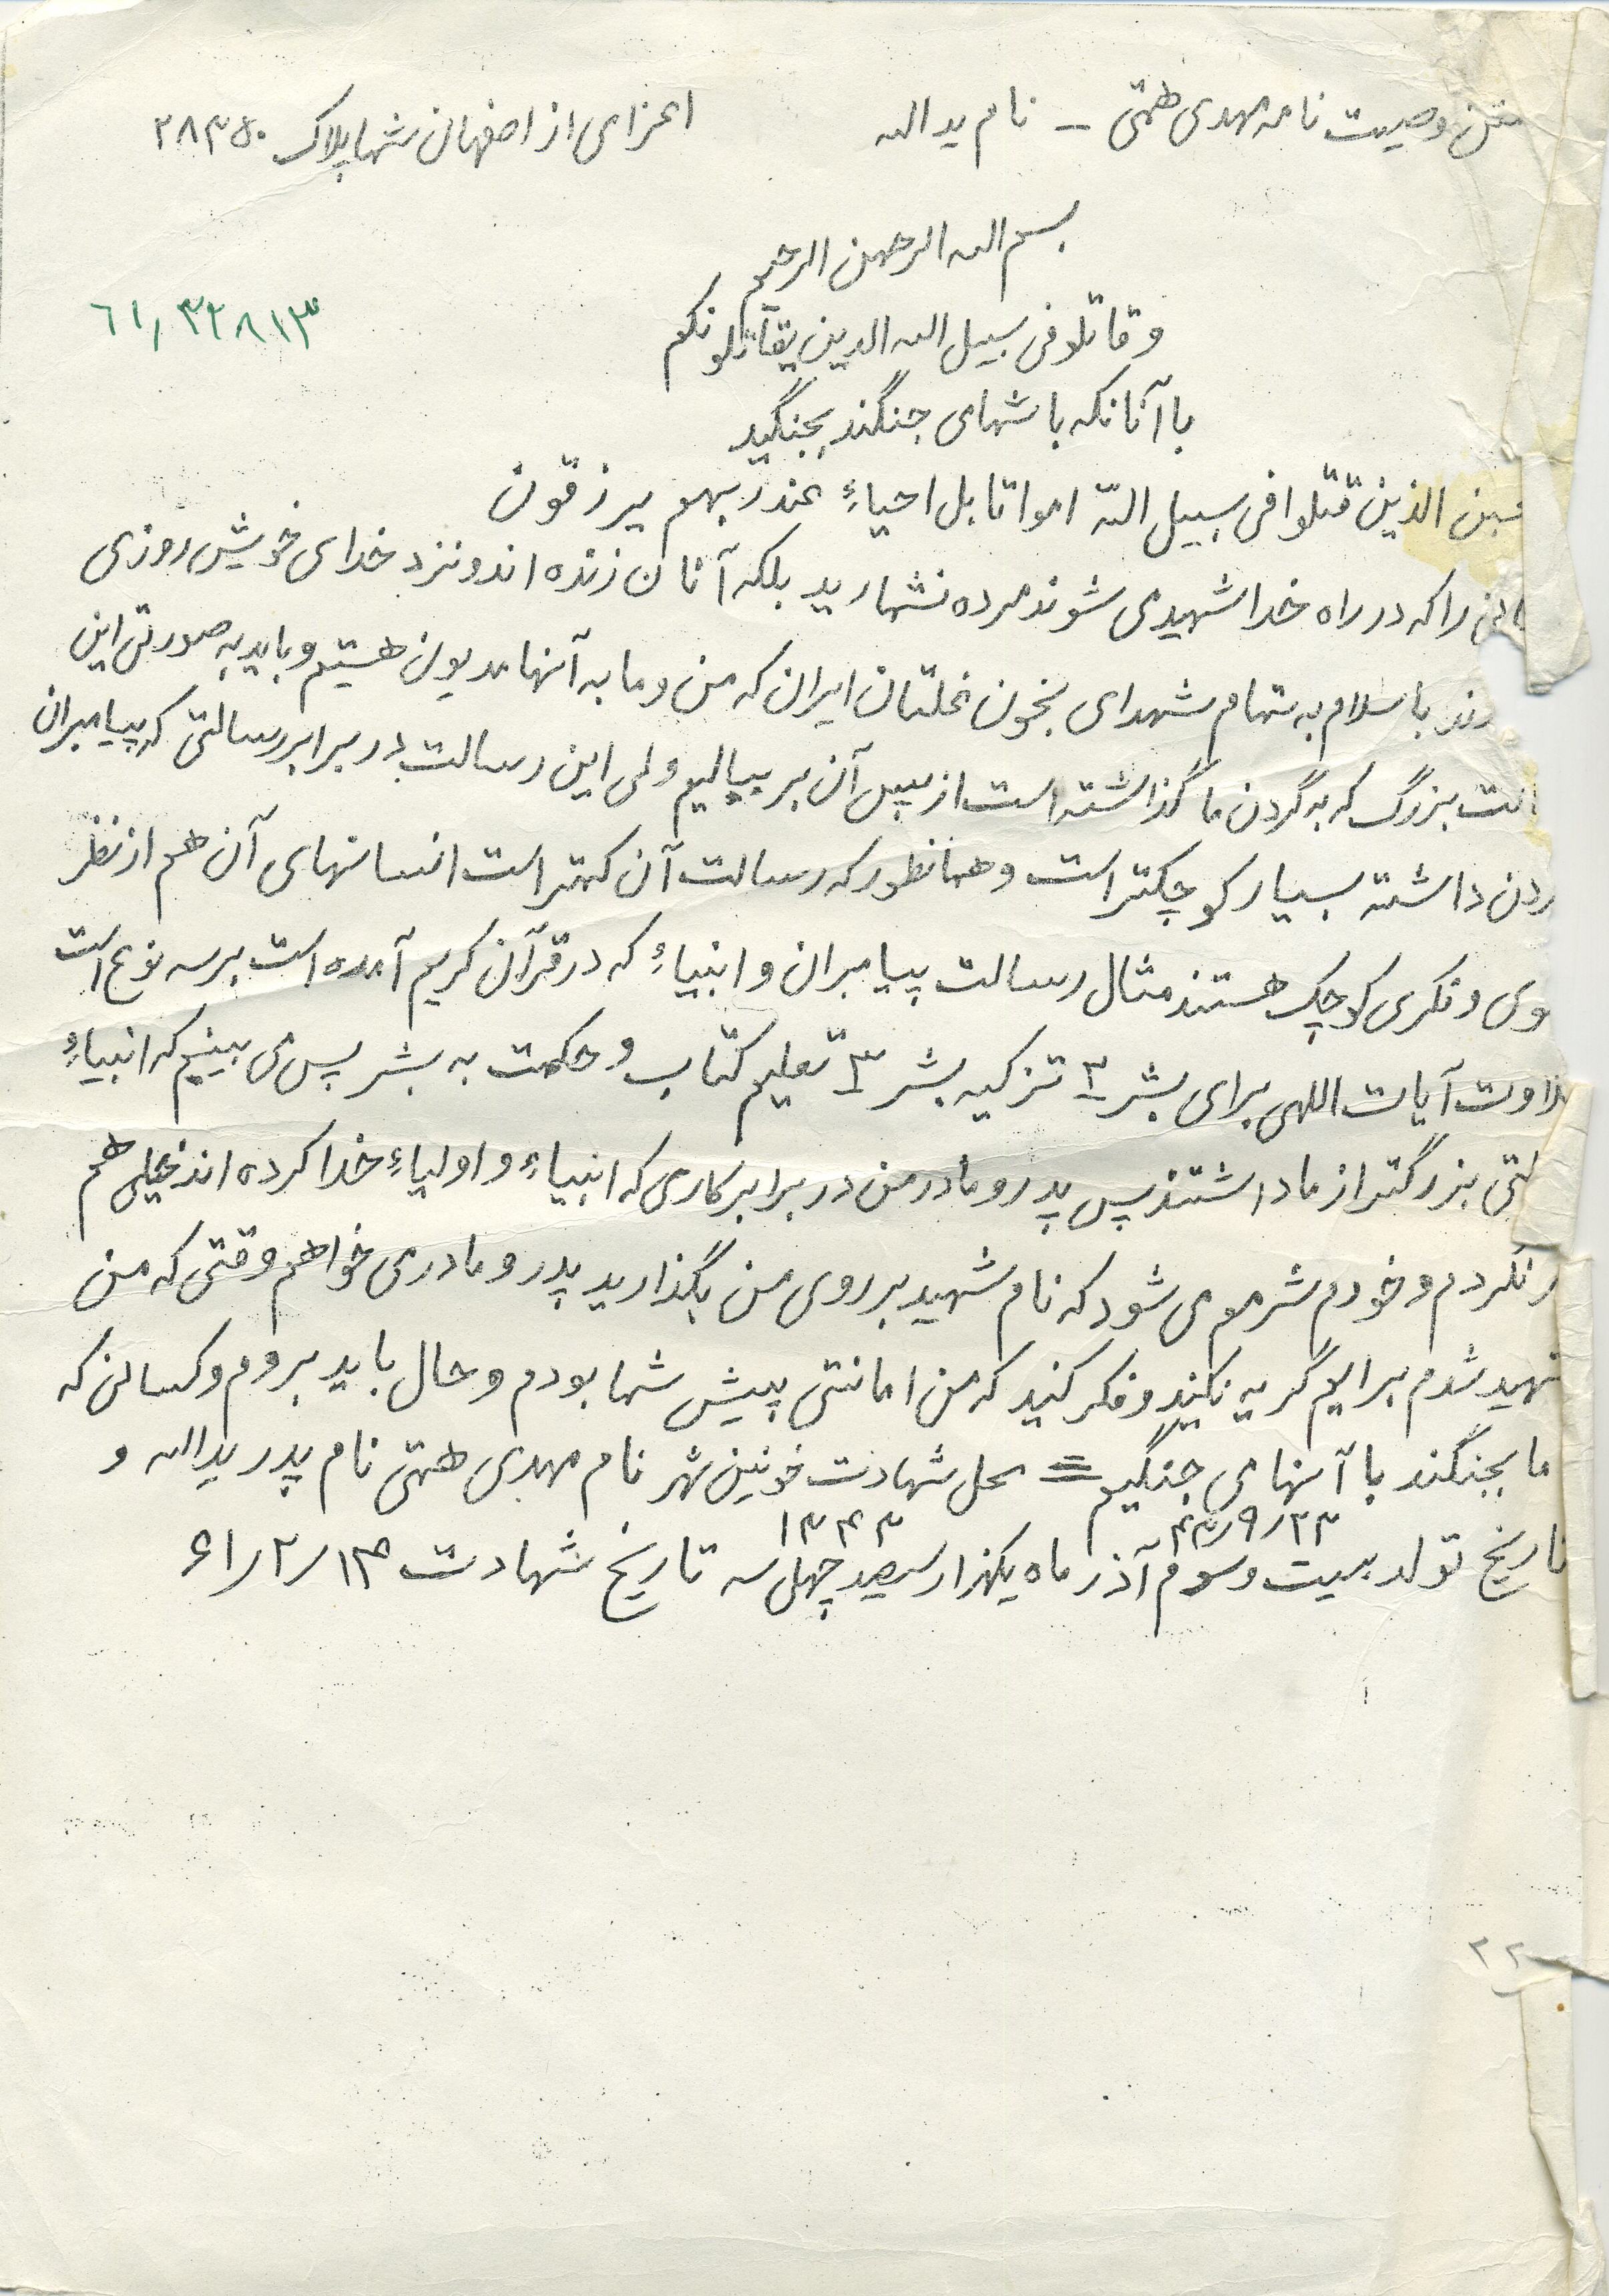 متن وصیت نامه مهدی همتی – نام یداله اعزامی از اصفهان شما پلاک ۲۸۳۵۰
بسم اله الرحمن الرحیم
۶۱٫۳۲۸۱۳
و قاتلو فی سبیل اله الدین یقاتلونکم
با آنانکه با شما می جنگند بجنگید
الذین قتلوا فی سبیل اللّه امواتا بل احیاءٌ عند ربهم یرزقون
را که در راه خدا شهید می شوند مرده نشمارید بلکه آنان زنده اند و نزد خدای خویش روزی
با سلام به تمام شهدای بخون غلتان ایران که من و ما به آنها مدیون هستیم و باید به صورتی این
بزرگ که به گردن ما گذاشته است از پس آن بر بیاییم ولی این رسالت در برابر رسالتی که پیامبران
داشته بسیار کوچکتر است و همانطور که رسالت آن کمتر است انسانهای آن هم از نظر
و فکری کوچک هستند مثال رسالت پیامبران و انبیاءِ که در قرآن کریم آمده است بر سه نوع است
آیات اللهی برای بشر ۲ تزکیه بشر ۳ تعلیم کتاب و حکمت به بشر پس می بینیم که انبیاءِ
بزرگتر از ما داشتند پس پدر و مادر من در برابر کاری که انبیاءِ و اولیاءِ خدا کرده اند خیلی هم
نکردم و خودم شرمم می شود که نام شهید بر روی من بگذارید پدر و مادر می خواهم وقتی که من
شهید شدم برایم گریه نکنید و فکر کنید که من امانتی پیش شما بودم و حال باید بروم و کسانی که
ما بجنگند با آنها می جنگیم = محل شهادت خونین شهر نام مهدی همتی نام پدر یداله و
۴۳٫۹٫۲۳ ۱۳۴۳
تاریخ تولد بیست و سوم آذر ماه یکهزار سیصد چهل سه تاریخ شهادت ۶۱٫۲٫۱۳
۲۲